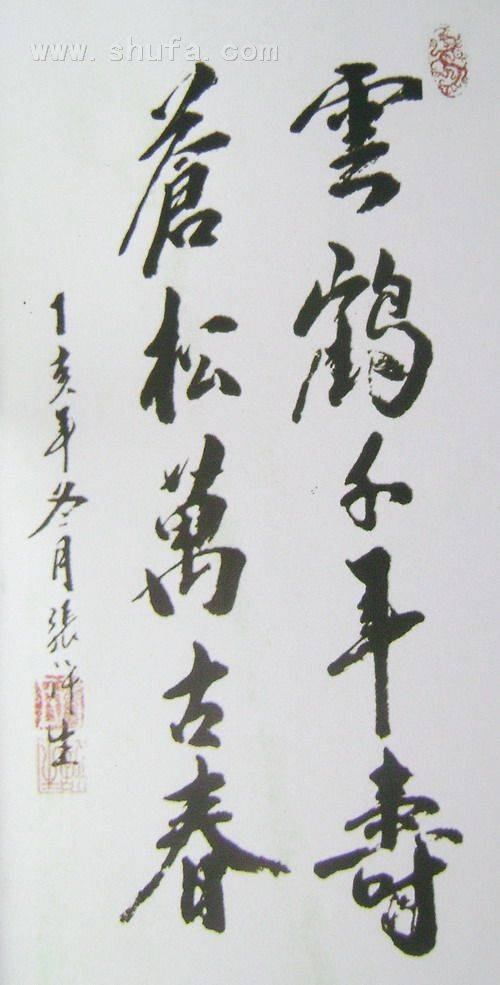 www.shufa.com
雲鶴千年壽
蒼松萬古春
丁亥年冬月張祥生